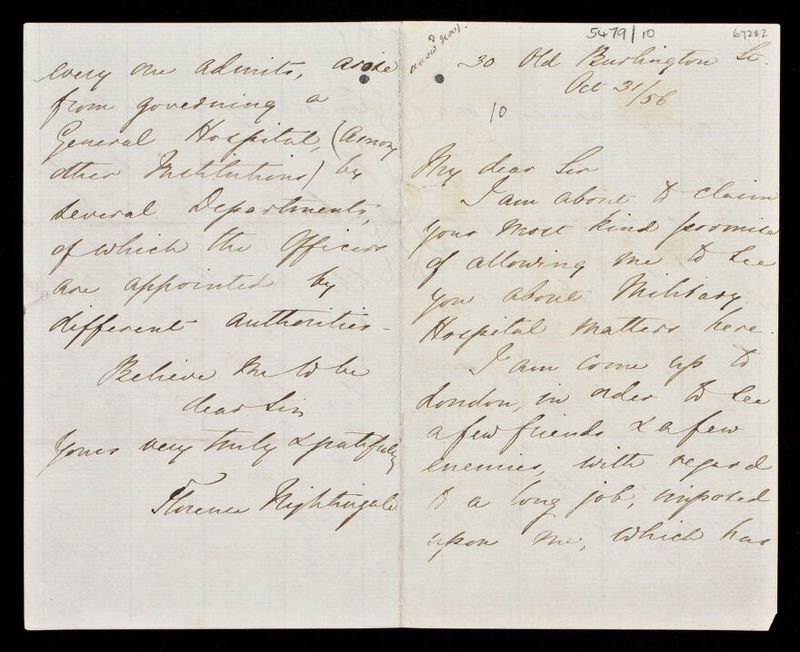 5479/10
67282
30 Old Burlington St.
Oct 31/56
10
My dear Sir
I am about to claim
your most kind promise
of allowing me to see
you about Military
Hospital matters here.
I am come up to
London, in order to see
a few friends & a few
enemies, with regard
to a long job, imposed
upon me, which has
every one admits, arise
from governing a
General Hospital, (among
other Institutions) by
several Departments,
of which the Officers
are appointed by
different authorities -
Believe me to be
dear Sir
Yours very truly & gratefully
Florence Nightingale